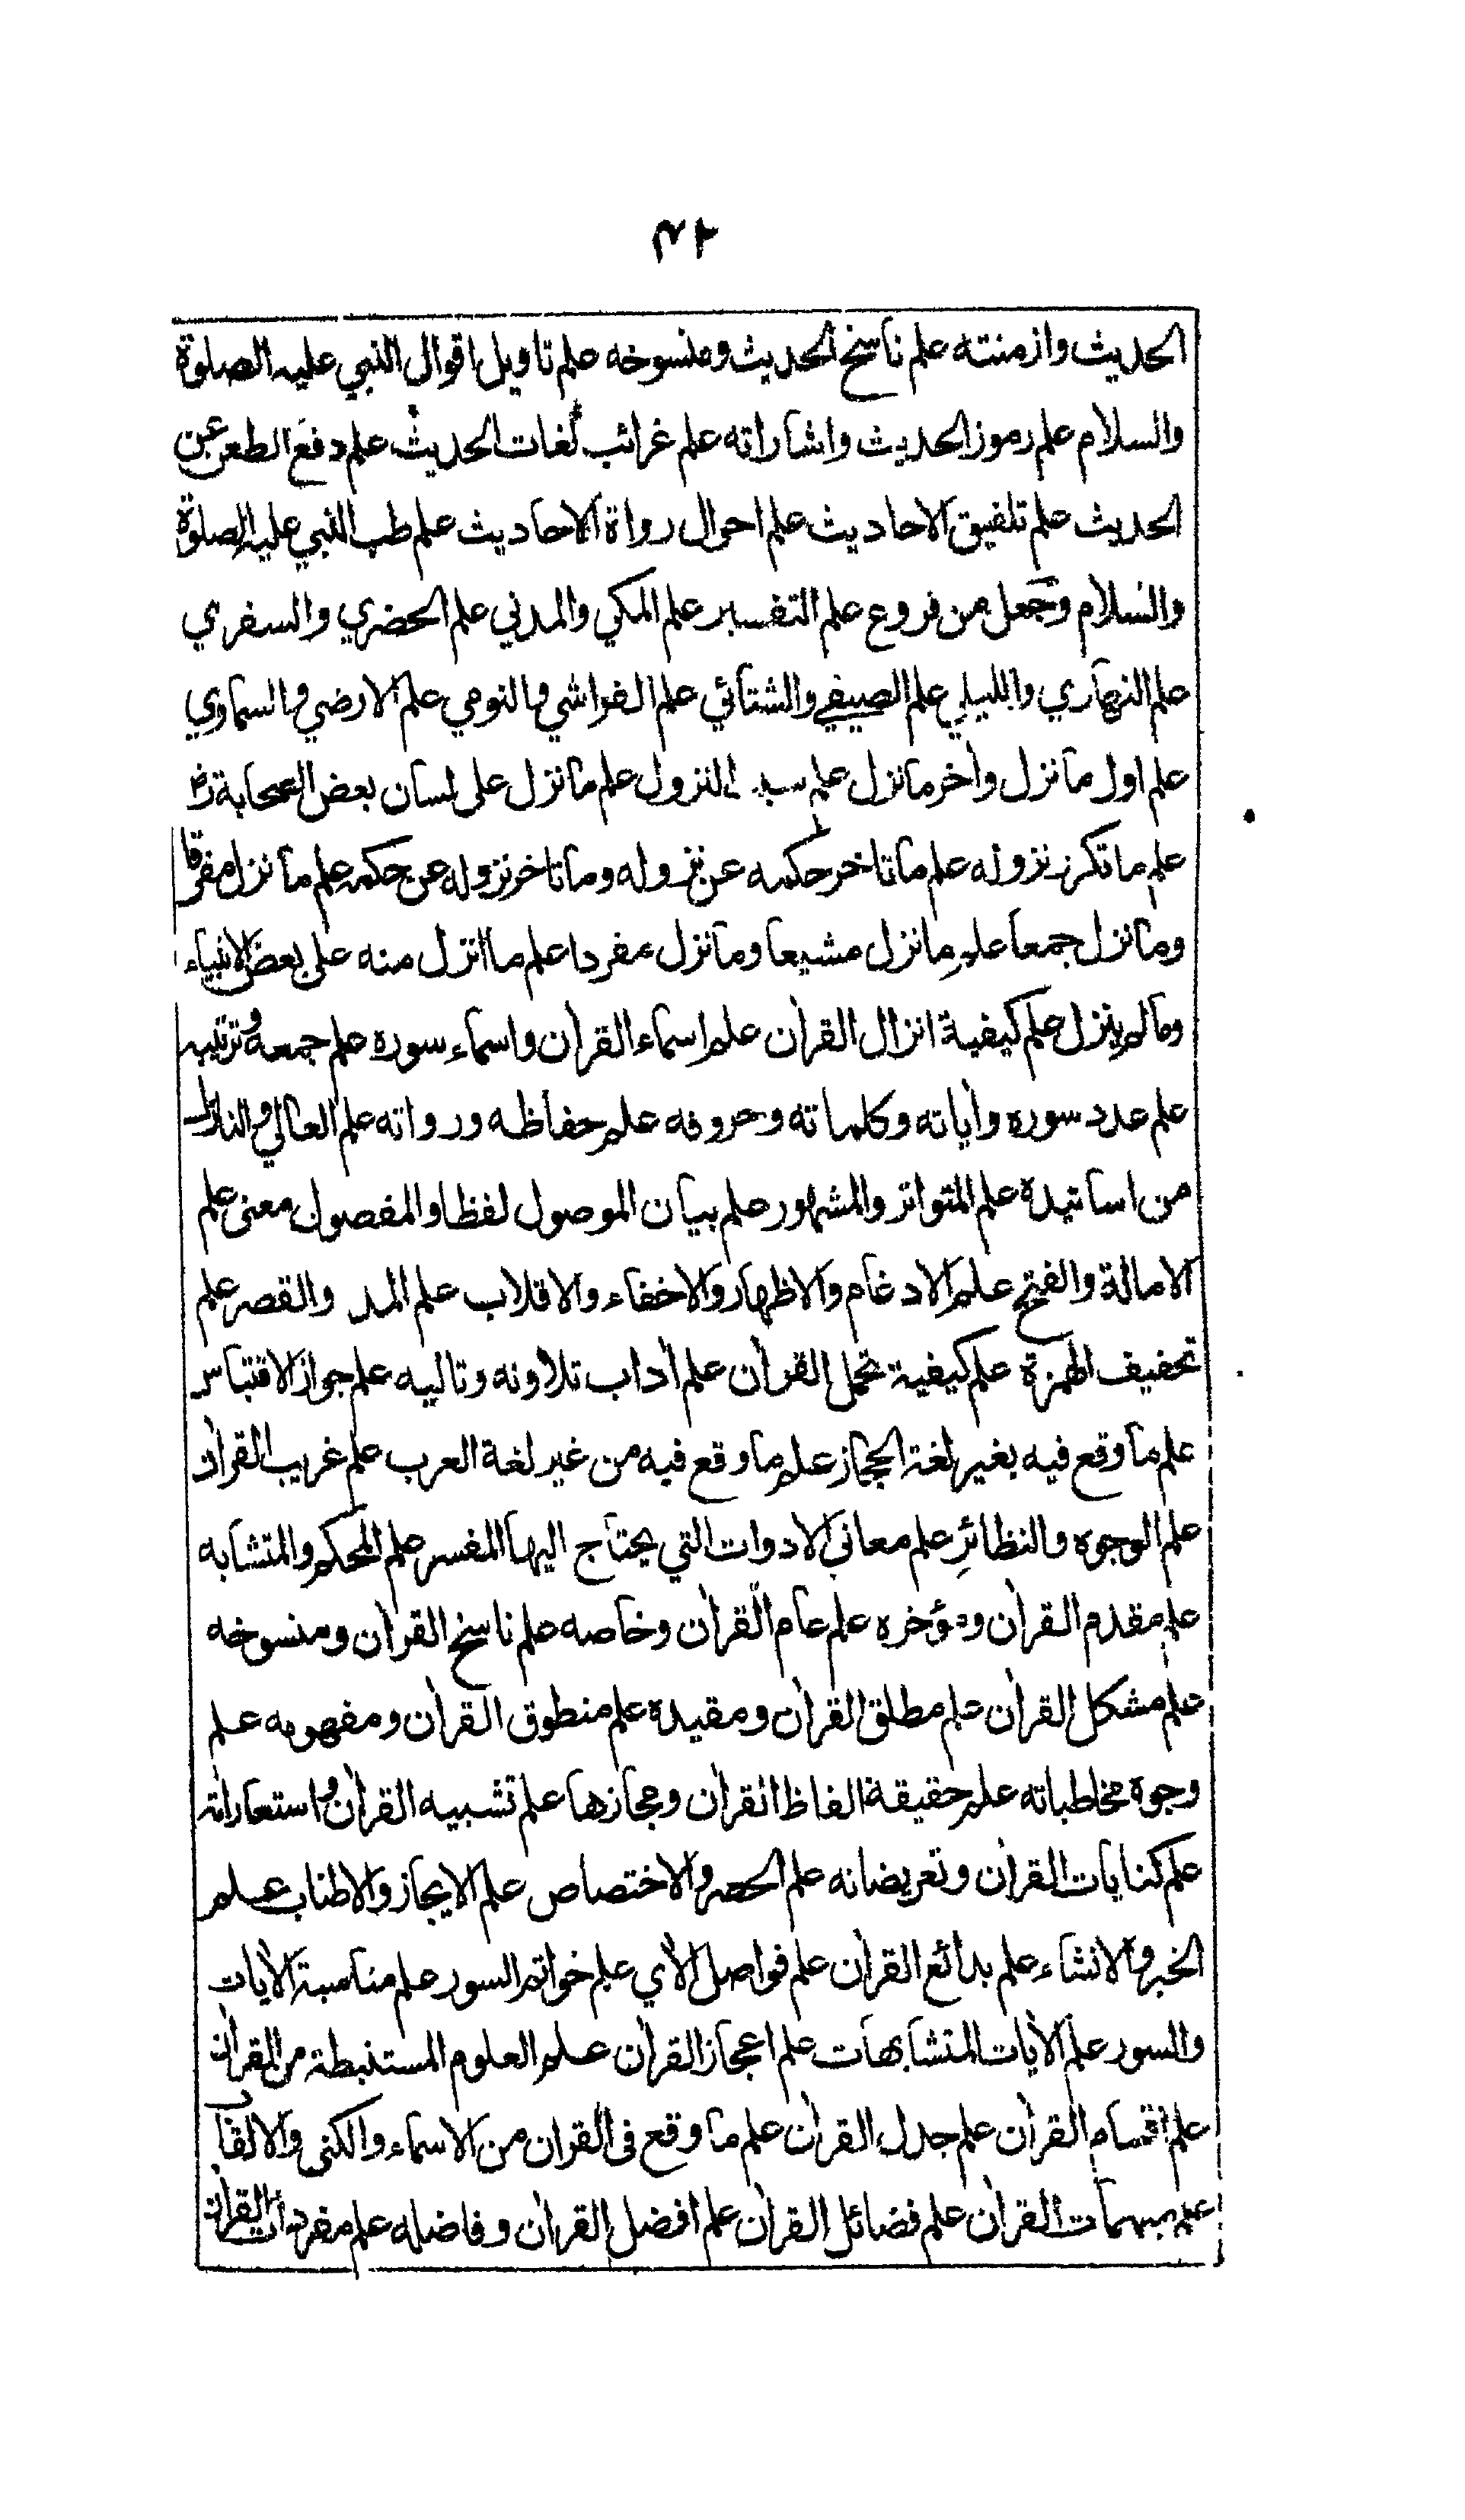 ٤٢
الحديث وازمنته علم ناسخ الحديث ومنسوخه علم تاويل اقوال النبي عليه الصلوة
والسلام علم رموز الحديث واشاراته علم غرائب لغات الحديث علم دفع الطعن عن
الحديث علم تلفيق الاحاديث علم احوال رواة الاحاديث علم طب النبي عليه الصلوة
والسلام وجعل من فروع علم التفسير علم المكي والمدني علم الحضري والسفري
علم النهاري والليلي علم الصيفي والشتائي علم الفراشي والنومي علم الارضي والسماوي
علم اول ما نزل واخر ما نزل علم سبب النزول علم ما نزل على لسان بعض الصحابة رض
علم ما تكرر نزوله علم ما تاخر حكمه عن نزوله وما تاخر نزوله عن حكمه علم ما نزل مفرقا
وما نزل جمعا علم ما نزل مشيعا وما نزل مفردا علم ما انزل منه على بعض الانبياء
وما لم ينزل علم كيفية انزال القرآن علم اسماء القرآن واسماء سوره علم جمعه وترتيبه
علم عدد سوره وآياته وكلماته وحروفه علم حفاظه ورواته علم العالي والنازل
من اسانيده علم المتواتر والمشهور علم بيان الموصول لفظا والمفصول معنى علم
الامالة والفتح علم الادغام والاظهار والاخفاء والاقلاب علم المد والقصر علم
تخفيف الهمزة علم كيفية تحمل القرآن علم آداب تلاوته وتاليه علم جواز الاقتباس
علم ما وقع فيه بغير لغة الحجاز علم ما وقع فيه من غير لغة العرب علم غريب القرآن
علم الوجوه والنظائر علم معاني الادوات التي يحتاج اليها المفسر علم المحكم والمتشابه
علم مقدم القرآن ومؤخره علم عام القرآن وخاصه علم ناسخ القرآن ومنسوخه
علم مشكل القرآن علم مطلق القرآن ومقيده علم منطوق القرآن ومفهومه علم
وجوه مخاطباته علم حقيقة الفاظ القرآن ومجازها علم تشبيه القرآن واستعاراته
علم كنايات القرآن وتعريضاته علم الحصر والاختصاص علم الايجاز والاطناب علم
الخبر والانشاء علم بدائع القرآن علم فواصل الآي علم خواتم السور علم مناسبة الآيات
والسور علم الآيات المتشابهات علم اعجاز القرآن علم العلوم المستنبطة من القرآن
علم اقسام القرآن علم جدل القرآن علم ما وقع في القرآن من الاسماء والكنى والالقاب
علم مبهمات القرآن علم فضائل القرآن علم افضل القرآن وفاضله علم مفردات القرآن